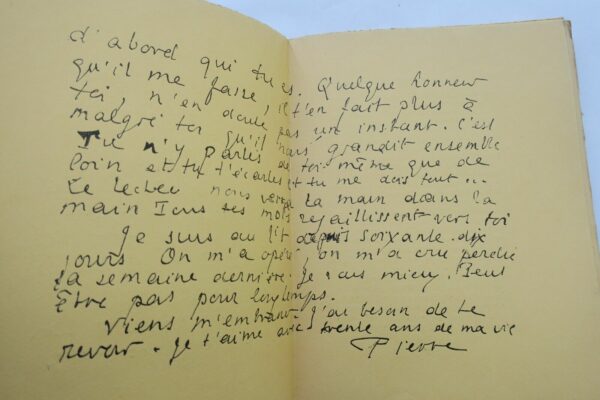 d'abord qui tu es. Quelque honneur
qu'il me fasse, il t'en fait plus à
toi, n'en doute pas un instant. C'est
malgré toi qu'il nous grandit ensemble
Tu n'y parles de toi-même que de
loin et tu t'écartes et tu me dois tout...
Le lecteur nous verra la main dans la
main Tous tes mots rejaillissent vers toi
Je suis au lit depuis soixante-dix
jours On m'a opéré, on m'a cru perdu
la semaine dernière. Je vais mieux. Peut
Être pas pour longtemps.
Viens m'embrasser. J'ai besoin de te
revoir. Je t'aime avec trente ans de ma vie
Pierre